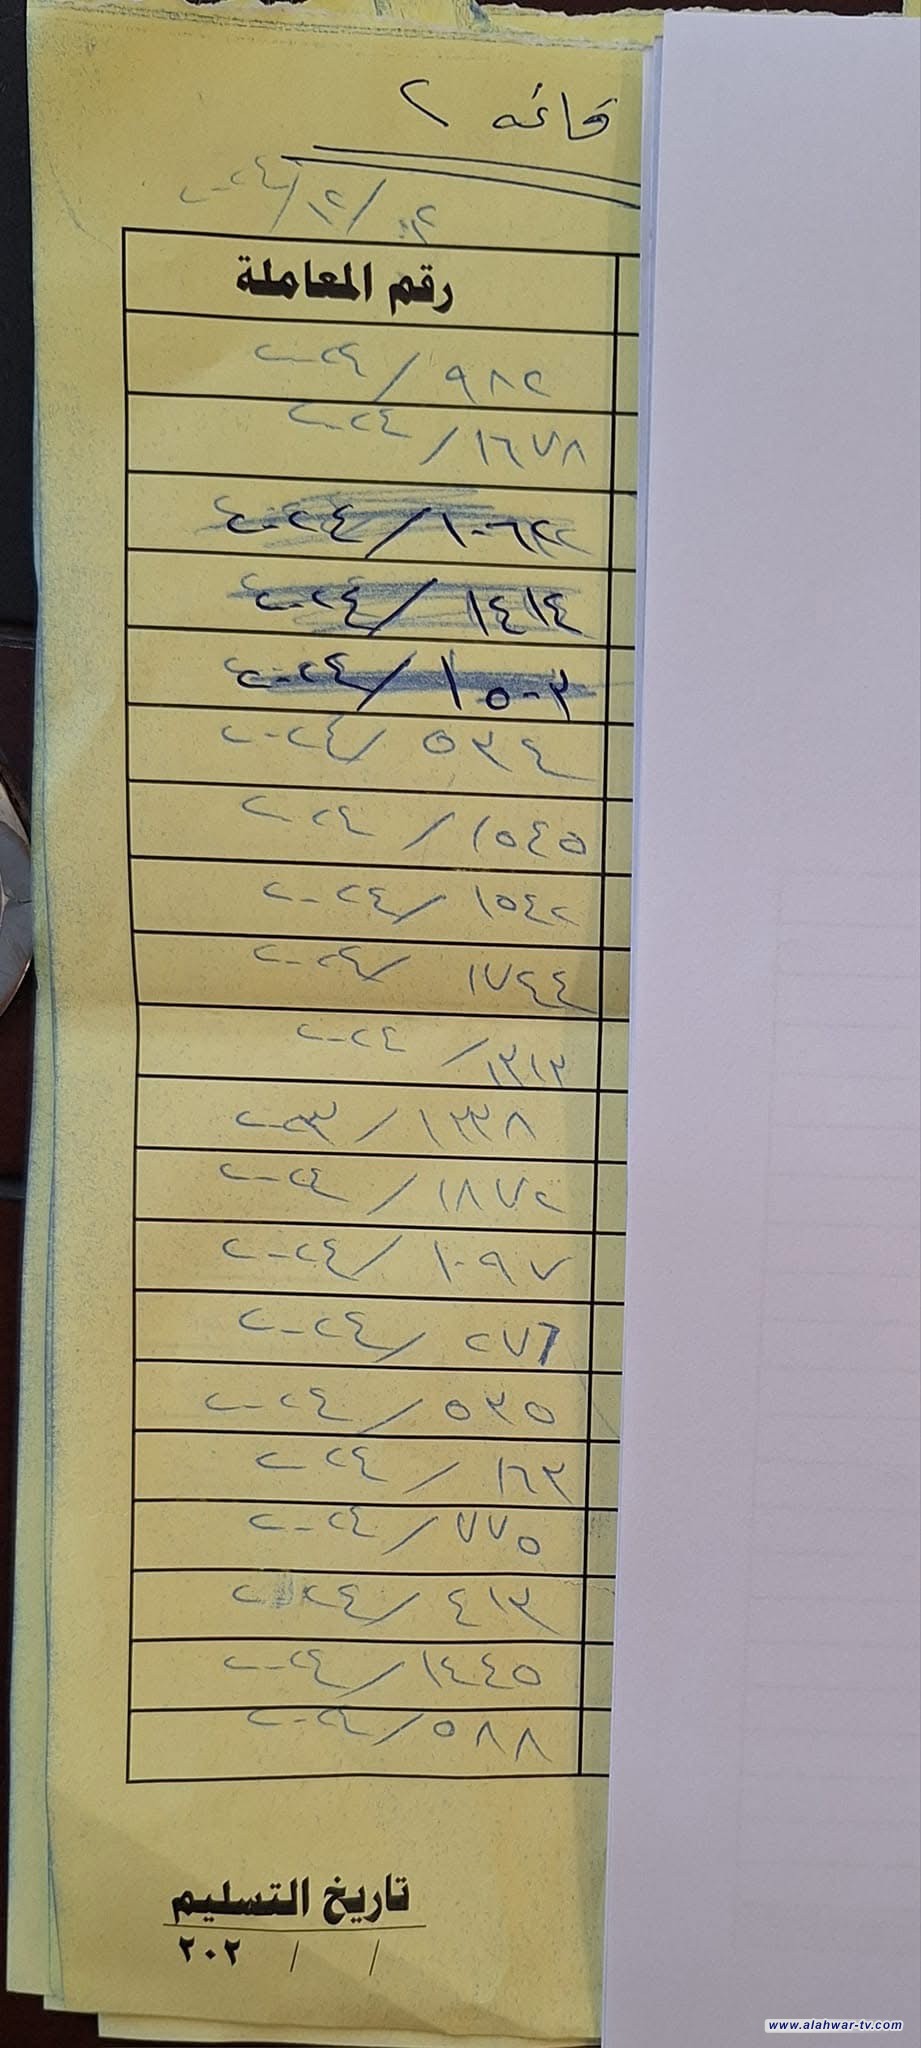 قائمه ٢
٢٠/١٢/٢٠٢٤
رقم المعاملة
٩٨٢/٢٠٢٤
١٦٧٨/٢٠٢٤
١٤١٤/٢٠٢٤
١٥٠٣/٢٠٢٤
٥٣٤/٢٠٢٤
١٥٤٥/٢٠٢٤
١٥٤٢/٢٠٢٤
١٧٤٤/٢٠٢٤
١٣١٣/٢٠٢٤
١٣٣٨/٢٠٢٣
١٨٧٢/٢٠٢٤
١٠٩٧/٢٠٢٤
٢٧٦/٢٠٢٤
٥٣٥/٢٠٢٤
١٦٣/٢٠٢٤
٧٧٥/٢٠٢٤
٤١٣/٢٠٢٤
١٤٤٥/٢٠٢٤
٥٨٨/٢٠٢٤
تاريخ التسليم
/ / ٢٠٢
www.alahwar-tv.com